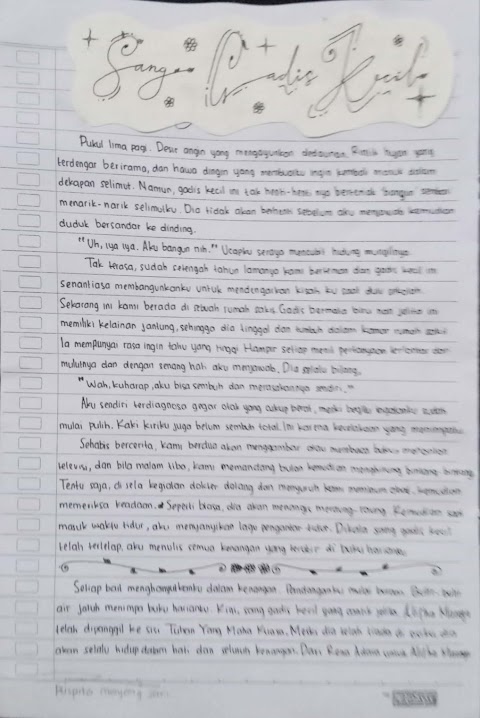 Sang Gadis Kecil
Pukul lima pagi. Desir angin yang mengayunkan dedaunan. Rintik hujan yang
terdengar berirama, dan hawa dingin yang membuatku ingin kembali masuk dalam
dekapan selimut. Namun, gadis kecil ini tak henti-henti nya berteriak bangun sembari
menarik-narik selimutku. Dia tidak akan berhenti sebelum aku menjawab kemudian
duduk bersandar ke dinding.
"Uh, iya iya. Aku bangun nih." Ucapku seraya mencubit hidung mungilnya.
Tak terasa, sudah setengah tahun lamanya kami berteman dan gadis kecil ini
senantiasa membangunkanku untuk mendengarkan kisah ku saat dulu sekolah.
Sekarang ini kami berada di sebuah rumah sakit. Gadis bermata biru nan jelita ini
memiliki kelainan jantung, sehingga dia tinggal dan tumbuh dalam kamar rumah sakit.
Ia mempunyai rasa ingin tahu yang tinggi. Hampir setiap menit pertanyaan terlontar dari
mulutnya dan dengan senang hati aku menjawab. Dia selalu bilang,
"Wah, kuharap, aku bisa sembuh dan merasakannya sendiri."
Aku sendiri terdiagnosa gegar otak yang cukup berat, meski begitu ingatanku sudah
mulai pulih. Kaki kiriku juga belum sembuh total. Ini karena kecelakaan yang menimpaku.
Sehabis bercerita, kami berdua akan menggambar atau membaca buku, menonton
televisi, dan bila malam tiba, kami memandang bulan kemudian menghitung bintang bintang.
Tentu saja, di sela kegiatan dokter datang dan menyuruh kami meminum obat, kemudian
memeriksa keadaan. Seperti biasa, dia akan menangis meraung-raung. Kemudian saat
masuk waktu tidur, aku menyanyikan lagu pengantar tidur. Dikala sang gadis kecil
telah terlelap, aku menulis semua kenangan yang terukir di buku harianku.
Setiap bait menghanyutkanku dalam kenangan. Pandanganku mulai buram. Butir-butir
air jatuh menimpa buku harianku. Kini, sang gadis kecil yang cantik jelita
telah dipanggil ke sisi Tuhan Yang Maha Kuasa. Meski dia telah tiada di sisiku dia
akan selalu hidup dalam hati dan seluruh kenangan. Dari Rena untuk